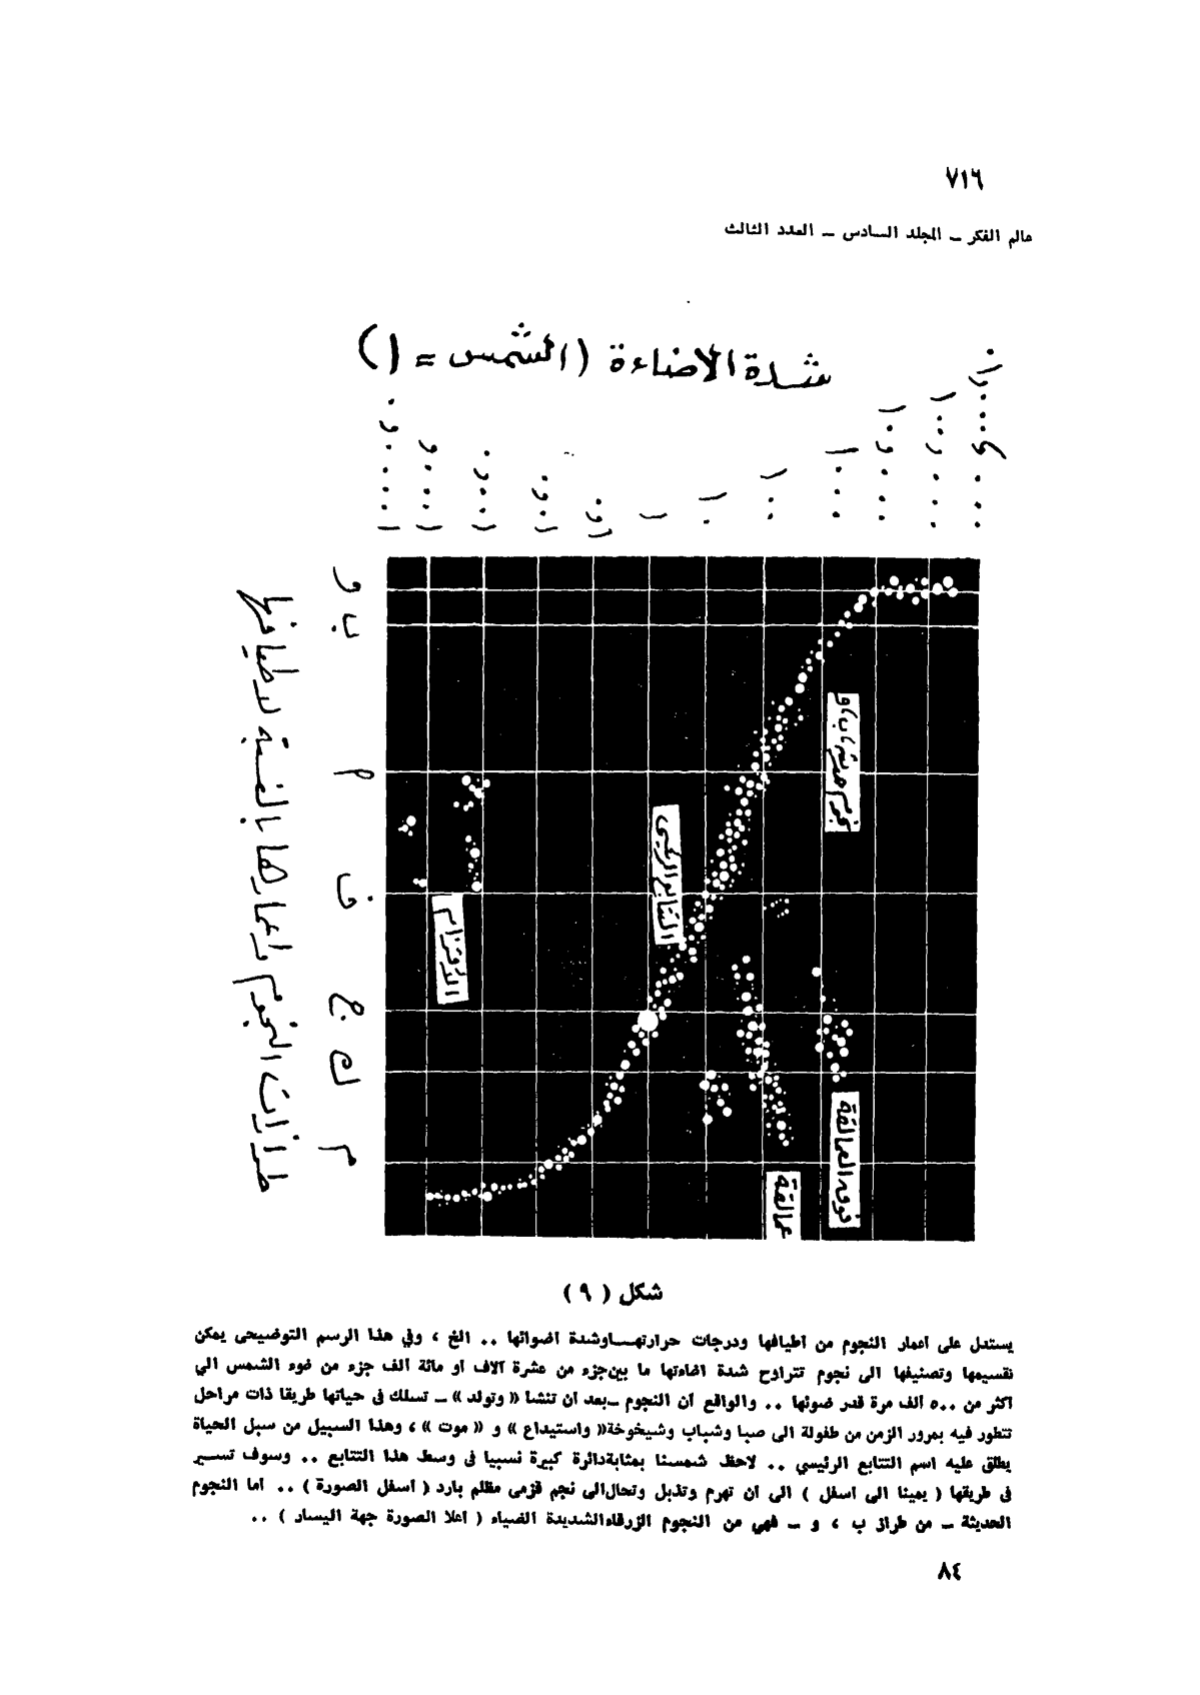 ٧١٦
عالم الفكر ــ المجلد السادس ــ العدد الثالث
شدة الاضاءة (الشمس = ١)
طرازات النجوم واعمارها بالنسبة لاطيافها
و
ب
م
ف
ج
ك
م
نجوم حديثة ب، و
التتابع الرئيسى
الأقزام
فوق العمالقة
عمالقة
شكل ( ٩ )
يستدل على اعمار النجوم من اطيافها ودرجات حرارتهـــاوشدة اضوائها .. الخ ، وفي هذا الرسم التوضيحى يمكن
تقسيمها وتصنيفها الى نجوم تتراوح شدة اضاءتها ما بين جزء من عشرة آلاف او مائة الف جزء من ضوء الشمس الي
اكثر من ٥٠٠ ألف مرة قدر ضوئها .. والواقع ان النجوم ــ بعد ان تنشا « وتولد » ــ تسلك فى حياتها طريقا ذات مراحل
تتطور فيه بمرور الزمن من طفولة الى صبا وشباب وشيخوخة« واستيداع » و « موت » ، وهذا السبيل من سبل الحياة
يطلق عليه اسم التتابع الرئيسي .. لاحظ شمسنا بمثابة دائرة كبيرة نسبيا فى وسط هذا التتابع .. وسوف تســير
فى طريقها ( يمينا الى اسفل ) الى ان تهرم وتذبل وتحال الى نجم قزمى مظلم بارد ( اسفل الصورة ) .. اما النجوم
الحديثة ــ من طراز ب ، و ــ فهي من النجوم الزرقاء الشديدة الضياء ( اعلا الصورة جهة اليسار ) ..
٨٤